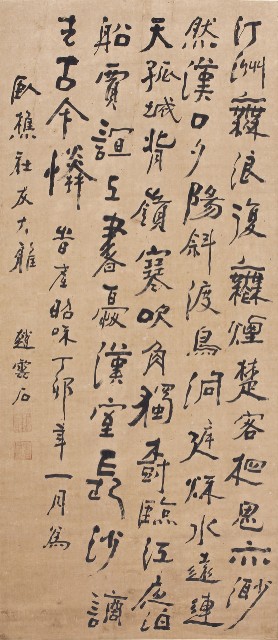 汀洲無浪復無煙楚客相思亦渺
然漢口夕陽斜渡鳥洞庭秌水遠連
天孤城背嶺寒吹角獨樹臨江夜泊
船賈誼上書憂漢室長沙謫
去古今憐 旹 昭咊丁卯年一月為
臥樵社友大雅 趙雲石